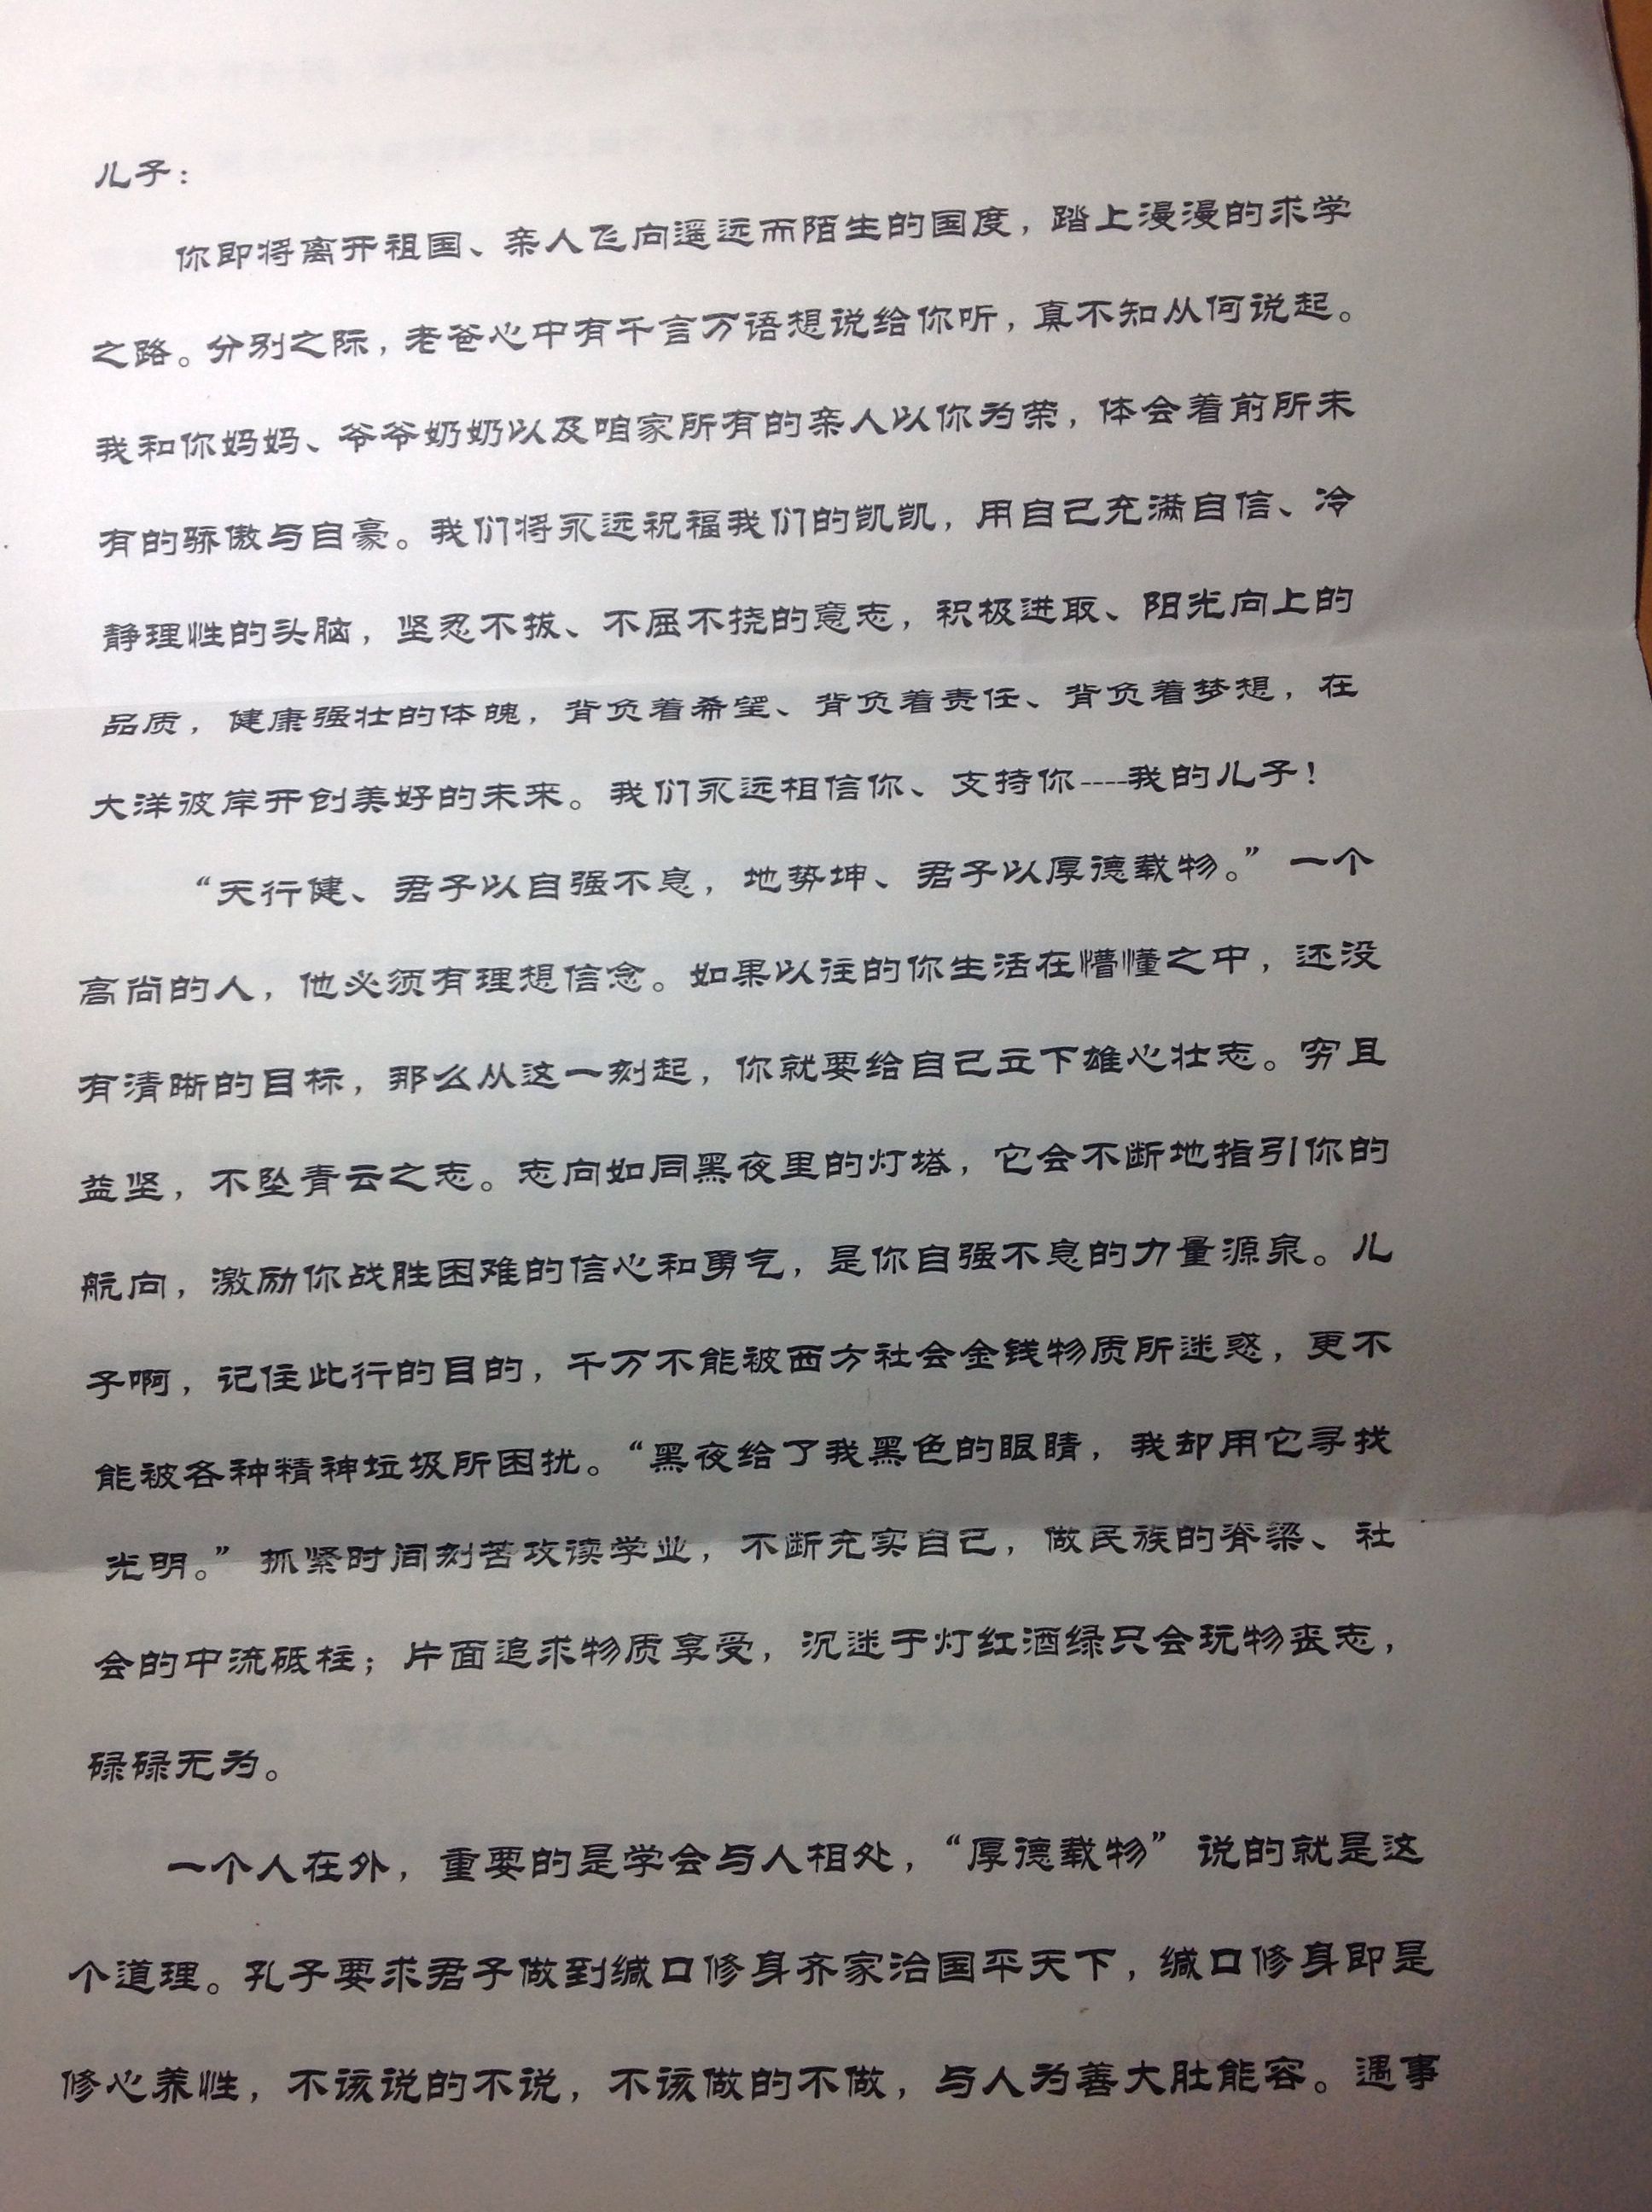 儿子：
你即将离开祖国、亲人飞向遥远而陌生的国度，踏上漫漫的求学
之路。分别之际，老爸心中有千言万语想说给你听，真不知从何说起。
我和你妈妈、爷爷奶奶以及咱家所有的亲人以你为荣，体会着前所未
有的骄傲与自豪。我们将永远祝福我们的凯凯，用自己充满自信、冷
静理性的头脑，坚忍不拔、不屈不挠的意志，积极进取、阳光向上的
品质，健康强壮的体魄，背负着希望、背负着责任、背负着梦想，在
大洋彼岸开创美好的未来。我们永远相信你、支持你----我的儿子！
“天行健、君子以自强不息，地势坤、君子以厚德载物。”一个
高尚的人，他必须有理想信念。如果以往的你生活在懵懂之中，还没
有清晰的目标，那么从这一刻起，你就要给自己立下雄心壮志。穷且
益坚，不坠青云之志。志向如同黑夜里的灯塔，它会不断地指引你的
航向，激励你战胜困难的信心和勇气，是你自强不息的力量源泉。儿
子啊，记住此行的目的，千万不能被西方社会金钱物质所迷惑，更不
能被各种精神垃圾所困扰。“黑夜给了我黑色的眼睛，我却用它寻找
光明。”抓紧时间刻苦攻读学业，不断充实自己，做民族的脊梁、社
会的中流砥柱；片面追求物质享受，沉迷于灯红酒绿只会玩物丧志，
碌碌无为。
一个人在外，重要的是学会与人相处，“厚德载物”说的就是这
个道理。孔子要求君子做到缄口修身齐家治国平天下，缄口修身即是
修心养性，不该说的不说，不该做的不做，与人为善大肚能容。遇事